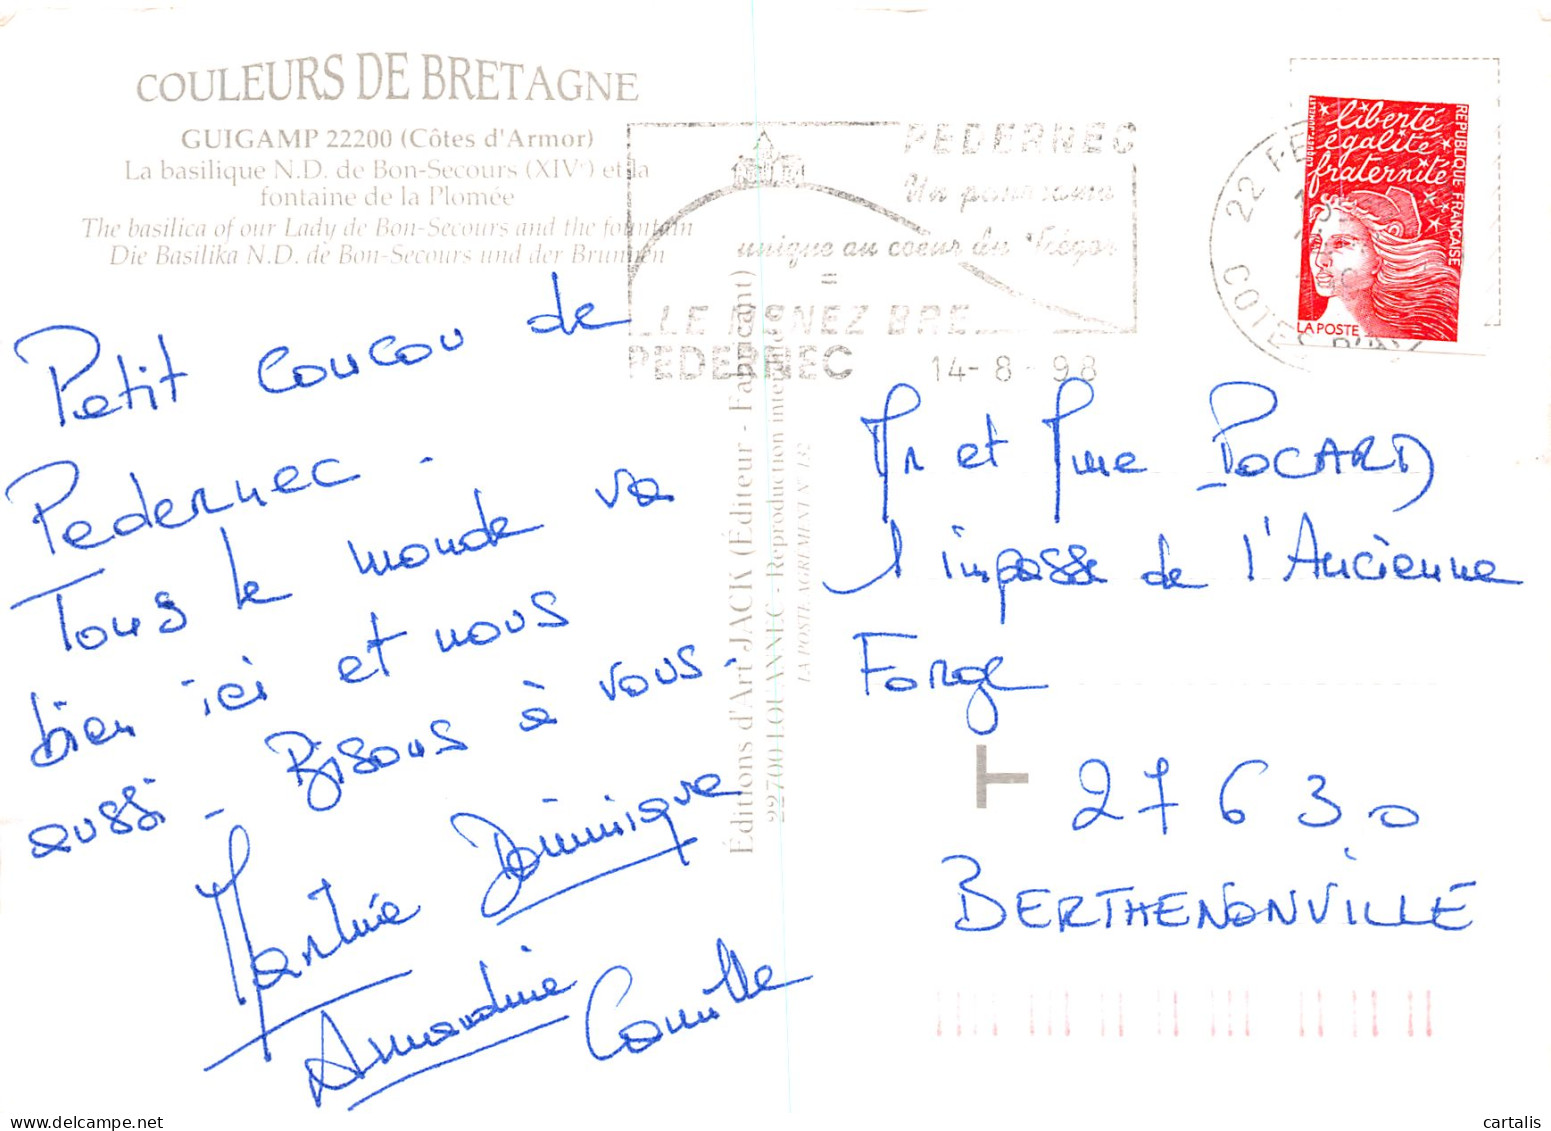 COULEURS DE BRETAGNE
GUIGAMP 22200 (Côtes d'Armor)
La basilique N.D. de Bon-Secours (XIVe) et la
fontaine de la Plomée
The basilica of our Lady de Bon-Secours and the fountain
Die Basilika N.D. de Bon-Secours und der Brunnen
Petit coucou de
Pedernec.
Tous le monde va
bien ici et nous
aussi. Bisous à vous.
Martine Dominique
Amandine Camille
PEDERNEC
Un panorama
unique au coeur du Trégor
=
LE MENEZ BRE
PEDERNEC 14-8-98
22
COTES D'
Éditions d'Art JACK (Éditeur - Fabricant)
22700 LOUANNEC - Reproduction interdite
LA POSTE AGREMENT N° 132
liberté
égalité
fraternité
REPUBLIQUE FRANÇAISE
LUQUET-JUMELET
LA POSTE
Mr et Mme POCARD
1 impasse de l'Ancienne
Forge
27630
BERTHENONVILLE
cartalis - delcampe.net